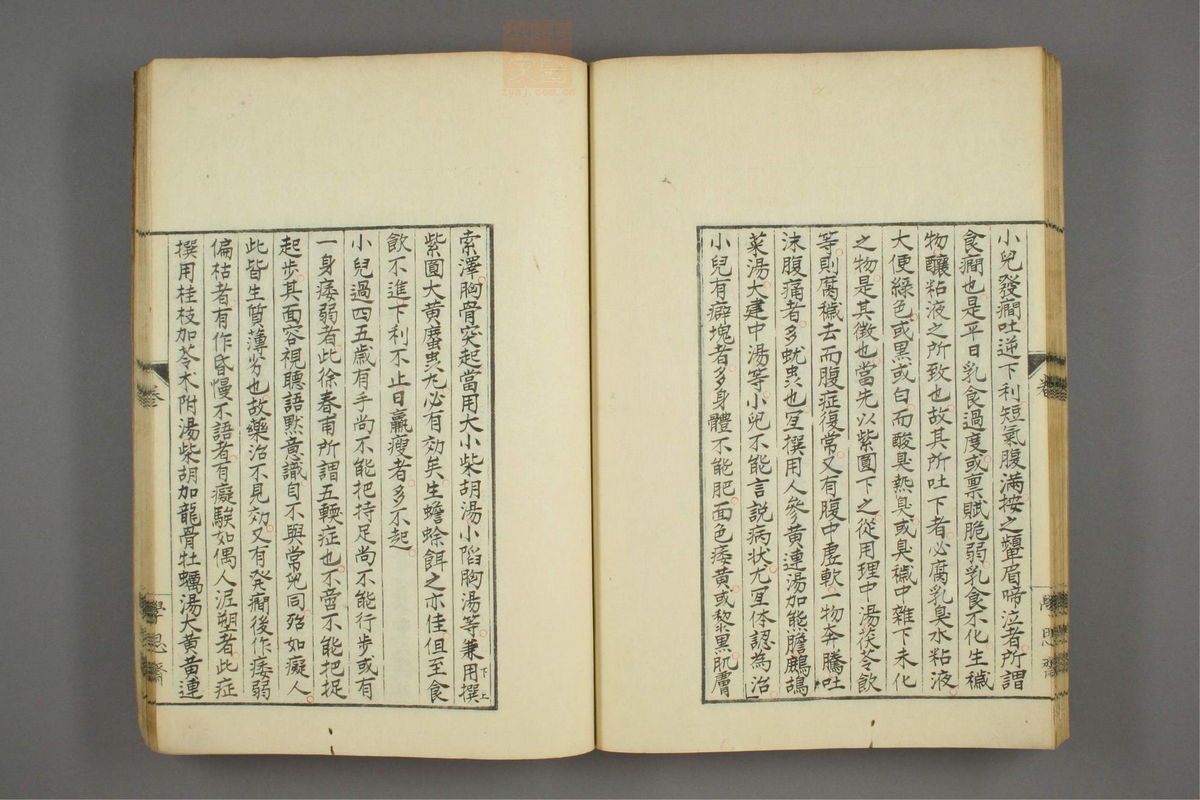 小兒發癎吐逆下利短氣腹満按之顰眉啼泣者所謂
食癎也是平日乳食過度或禀賦脆弱乳食不化生穢
物釀粘液之所致也故其所吐下者必腐乳臭水粘液
大便綠色或黒或白而酸臭熱臭或臭穢中雜下未化
之物是其徴也當先以紫圓下之從用理中湯茯苓飲
等則腐穢去而腹症復常又有腹中虚軟一物奔騰吐
沫腹痛者多蚘蟲也宜撰用人參黄連湯加熊膽鷓鴣
菜湯大建中湯等小兒不能言説病状尤宜体認為治
小兒有癖塊者多身體不能肥面色痿黄或黎黒肌膚
索澤胸骨突起當用大小柴胡湯小陷胸湯等兼用撰
下上
紫圓大黄䗪蟲丸必有効矣生蟾蜍餌之亦佳但至食
飲不進下利不止日羸瘦者多不起
小兒過四五歳有手尚不能把持足尚不能行步或有
一身痿弱者此徐春甫所謂五軟症也不啻不能把捉
起步其面容視聽語黙意識自不與常兒同殆如癡人
此皆生質薄劣也故藥治不見効又有発癎後作痿弱
偏枯者有作昏慢不語者有癡騃如偶人泥塑者此症
撰用桂枝加苓朮附湯柴胡加龍骨牡蠣湯大黄黄連
卷
學思齋